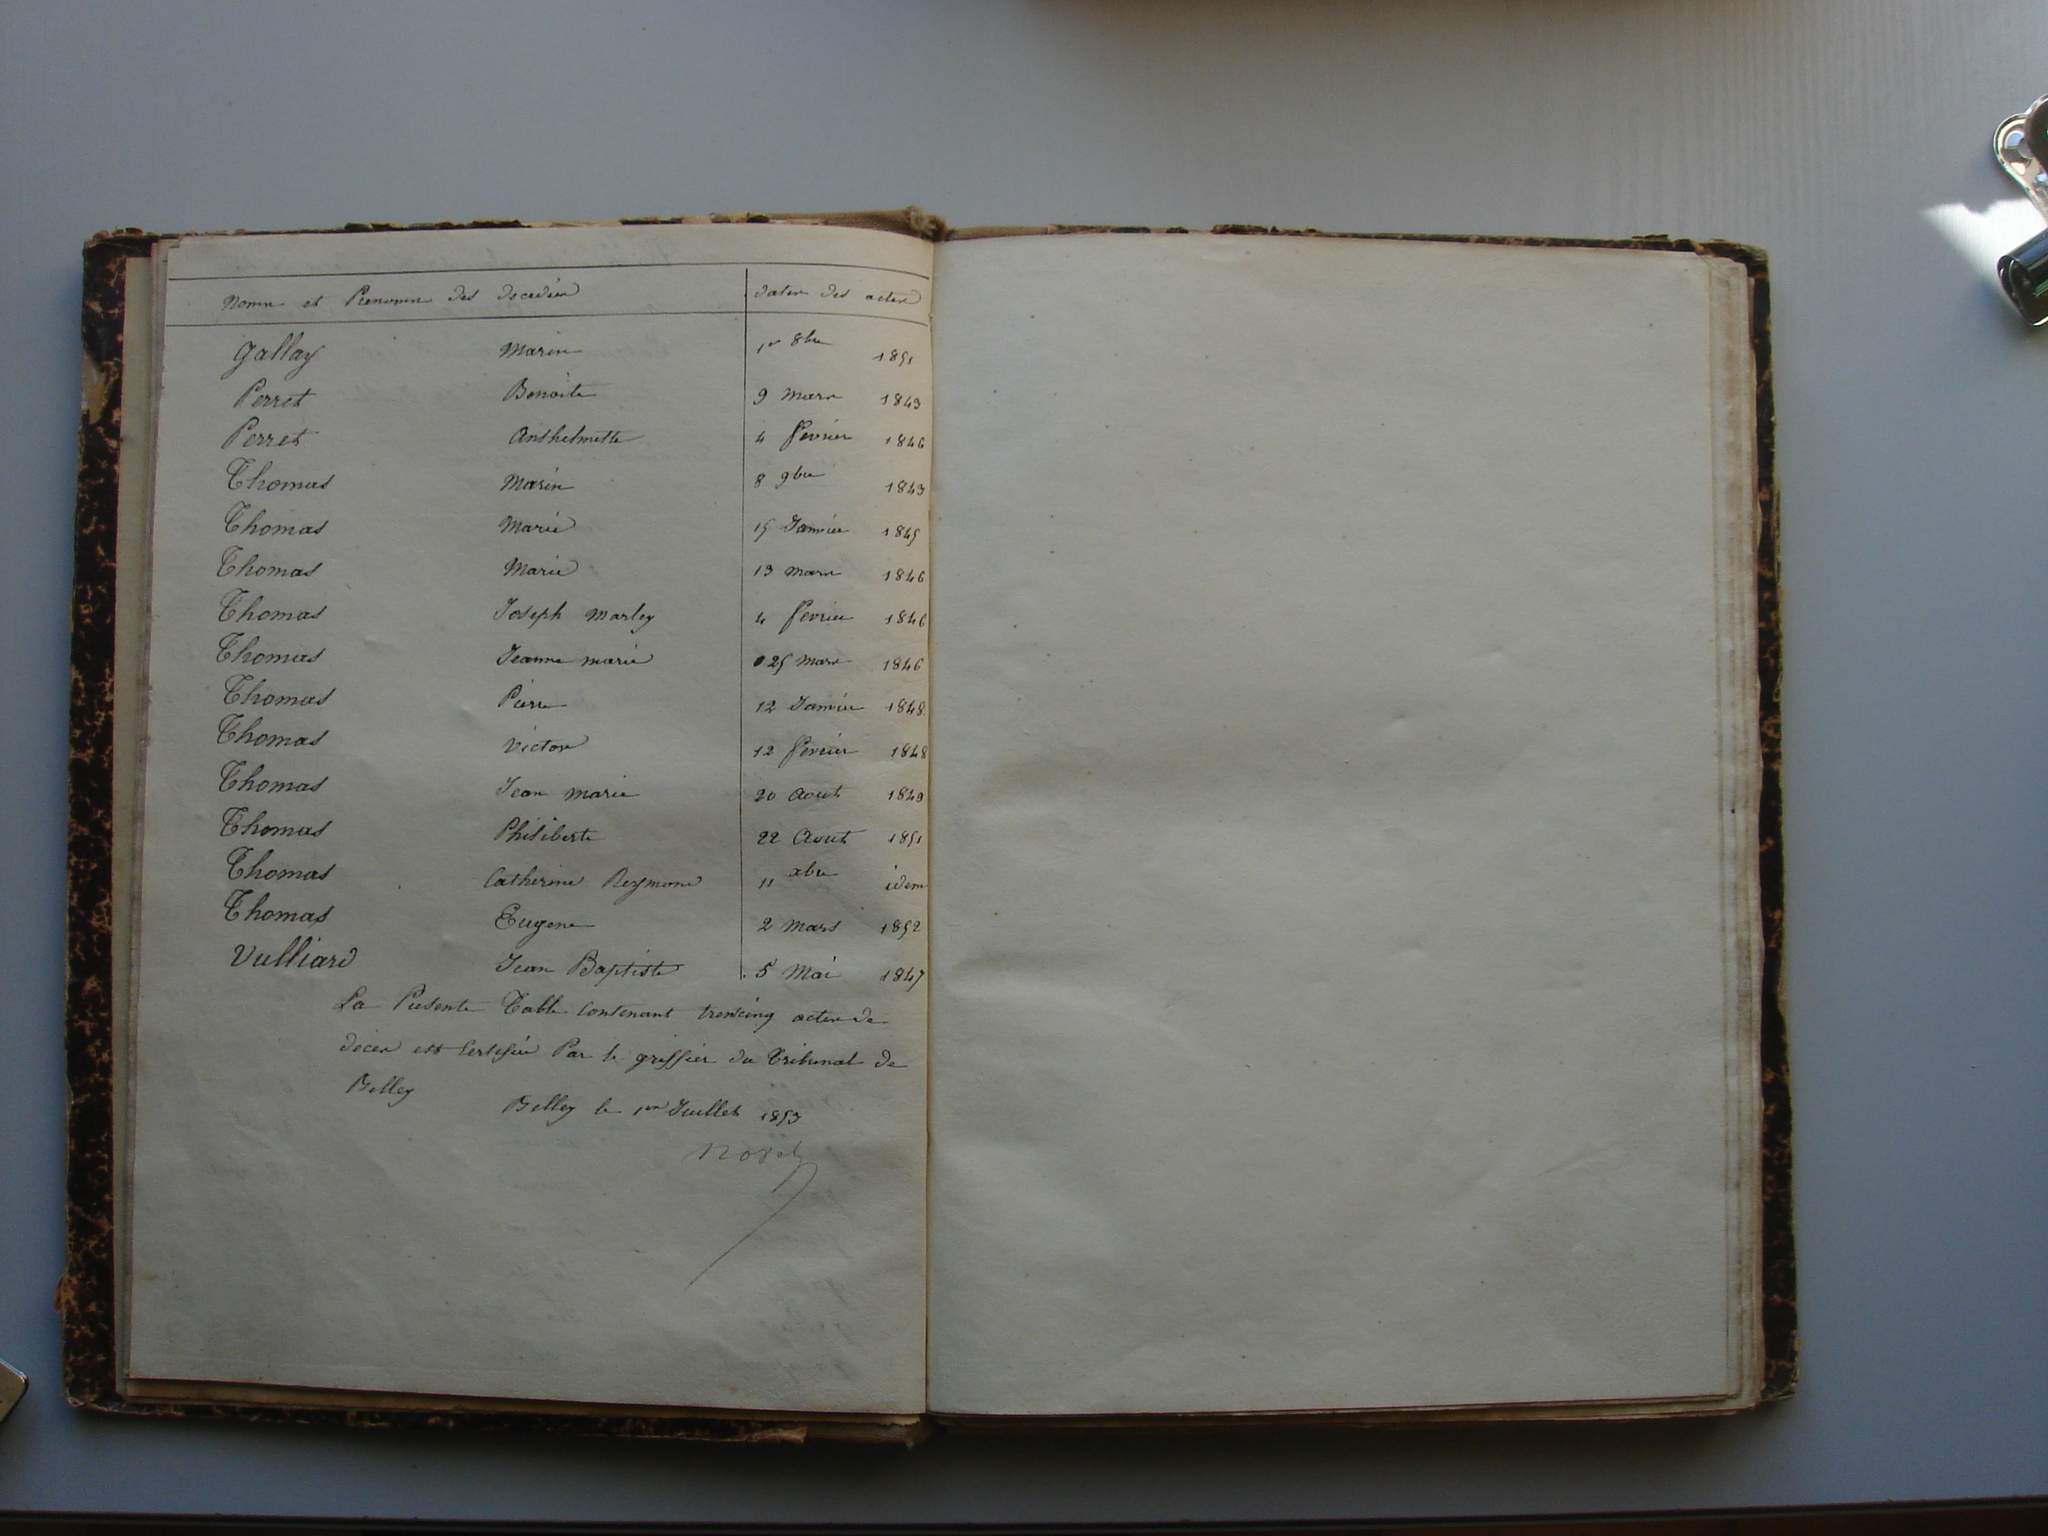 Noms et Prenoms des decedés dates des actes
Gallay Marin 1er 8bre 1851
Perret Benoite 9 mars 1843
Perret Anthelmette 4 fevrier 1846
Thomas Marin 8 9bre 1843
Thomas Marie 15 Janvier 1845
Thomas Marie 13 mars 1846
Thomas Joseph Marley 4 fevrier 1846
Thomas Jeanne marie 25 mars 1846
Thomas Pierre 12 Janvier 1848
Thomas Victor 12 fevrier 1848
Thomas Jean marie 20 Aout 1849
Thomas Philiberte 22 Aout 1851
Thomas Catherine Reymond 11 xbre idem
Thomas Eugene 2 Mars 1852
Vulliard Jean Baptiste 5 Mai 1847
La Presente Table contenant trentcinq actes de
déces est Certifiée Par le griffier du Tribunal de
Belley
Belley le 1er Juillet 1853